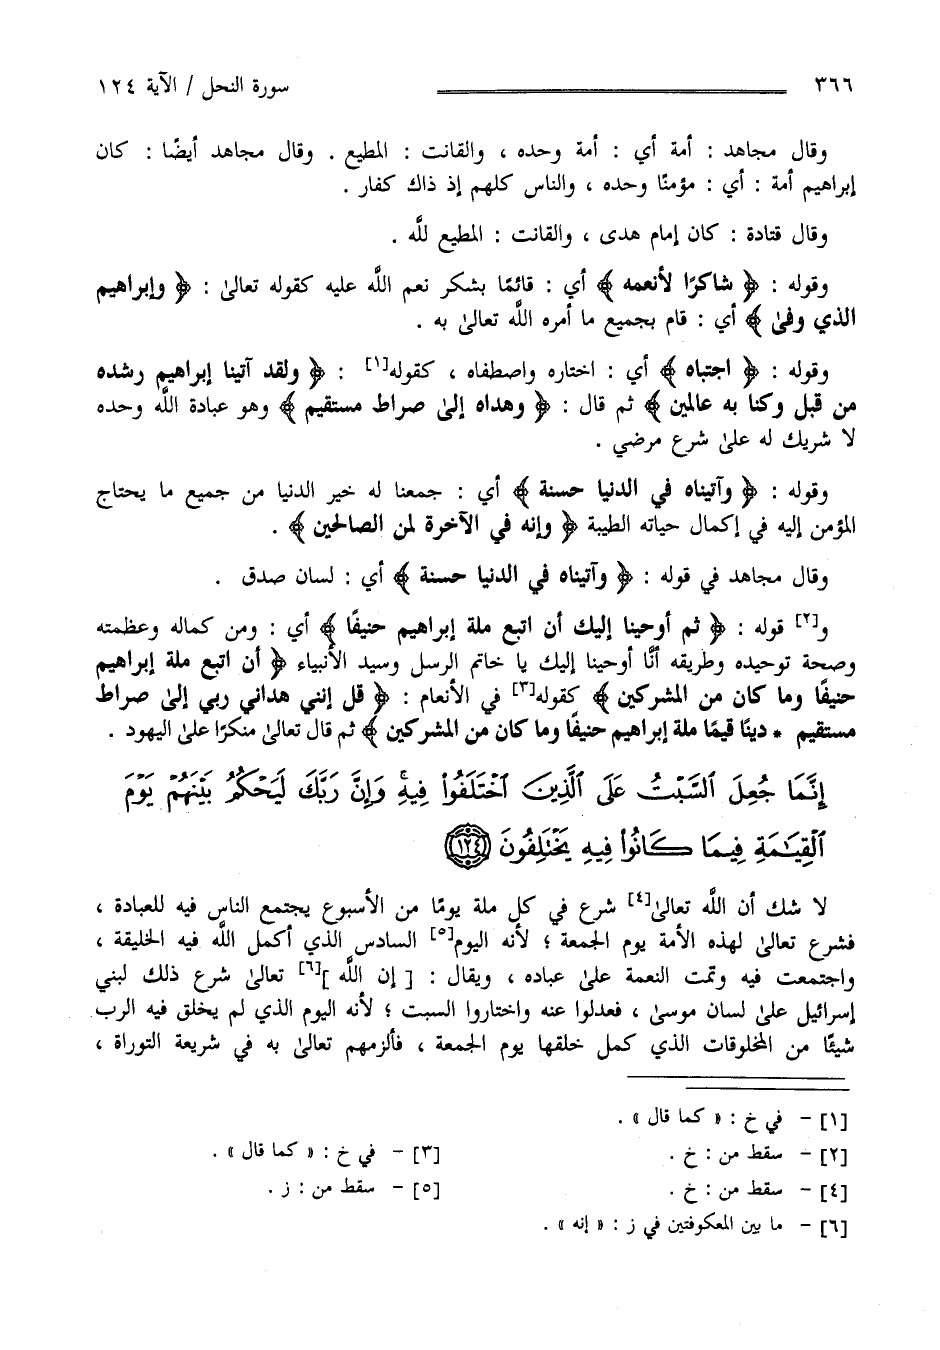 ٣٦٦ سورة النحل / الآية ١٢٤
وقال مجاهد : أمة أي : أمة وحده ، والقانت : المطيع . وقال مجاهد أيضًا : كان
إبراهيم أمة : أي : مؤمنًا وحده ، والناس كلهم إذ ذاك كفار .
وقال قتادة : كان إمام هدى ، والقانت : المطيع للَّه .
وقوله : ﴿ شاكرًا لأنعمه ﴾ أي : قائمًا بشكر نعم اللَّه عليه كقوله تعالىٰ : ﴿ وإبراهيم
الذي وفىٰ ﴾ أي : قام بجميع ما أمره اللَّه تعالىٰ به .
وقوله : ﴿ اجتباه ﴾ أي : اختاره واصطفاه ، كقوله[١] : ﴿ ولقد آتينا إبراهيم رشده
من قبل وكنا به عالمين ﴾ ثم قال : ﴿ وهداه إلىٰ صراط مستقيم ﴾ وهو عبادة اللَّه وحده
لا شريك له علىٰ شرع مرضي .
وقوله : ﴿ وآتيناه في الدنيا حسنة ﴾ أي : جمعنا له خير الدنيا من جميع ما يحتاج
المؤمن إليه في إكمال حياته الطيبة ﴿ وإنه في الآخرة لمن الصالحين ﴾ .
وقال مجاهد في قوله : ﴿ وآتيناه في الدنيا حسنة ﴾ أي : لسان صدق .
و[٢] قوله : ﴿ ثم أوحينا إليك أن اتبع ملة إبراهيم حنيفًا ﴾ أي : ومن كماله وعظمته
وصحة توحيده وطريقه أنَّا أوحينا إليك يا خاتم الرسل وسيد الأنبياء ﴿ أن اتبع ملة إبراهيم
حنيفًا وما كان من المشركين ﴾ كقوله[٣] في الأنعام : ﴿ قل إنني هداني ربي إلىٰ صراط
مستقيم * دينًا قيمًا ملة إبراهيم حنيفًا وما كان من المشركين ﴾ ثم قال تعالىٰ منكرًا علىٰ اليهود .
إِنَّمَا جُعِلَ ٱلسَّبْتُ عَلَى ٱلَّذِينَ ٱخْتَلَفُوا۟ فِيهِ ۚ وَإِنَّ رَبَّكَ لَيَحْكُمُ بَيْنَهُمْ يَوْمَ
ٱلْقِيَـٰمَةِ فِيمَا كَانُوا۟ فِيهِ يَخْتَلِفُونَ ١٢٤
لا شك أن اللَّه تعالىٰ[٤] شرع في كل ملة يومًا من الأسبوع يجتمع الناس فيه للعبادة ،
فشرع تعالىٰ لهذه الأمة يوم الجمعة ؛ لأنه اليوم[٥] السادس الذي أكمل اللَّه فيه الخليقة ،
واجتمعت فيه وتمت النعمة علىٰ عباده ، ويقال : [ إن اللَّه ][٦] تعالىٰ شرع ذلك لبني
إسرائيل علىٰ لسان موسىٰ ، فعدلوا عنه واختاروا السبت ؛ لأنه اليوم الذي لم يخلق فيه الرب
شيئًا من المخلوقات الذي كمل خلقها يوم الجمعة ، فألزمهم تعالىٰ به في شريعة التوراة ،
[١] - في خ : « كما قال » .
[٢] - سقط من : خ . [٣] - في خ : « كما قال » .
[٤] - سقط من : خ . [٥] - سقط من : ز .
[٦] - ما بين المعكوفتين في ز : « إنه » .